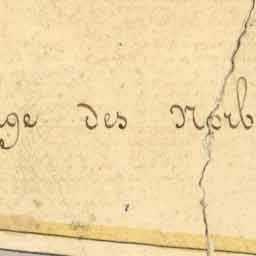 ge des Norb